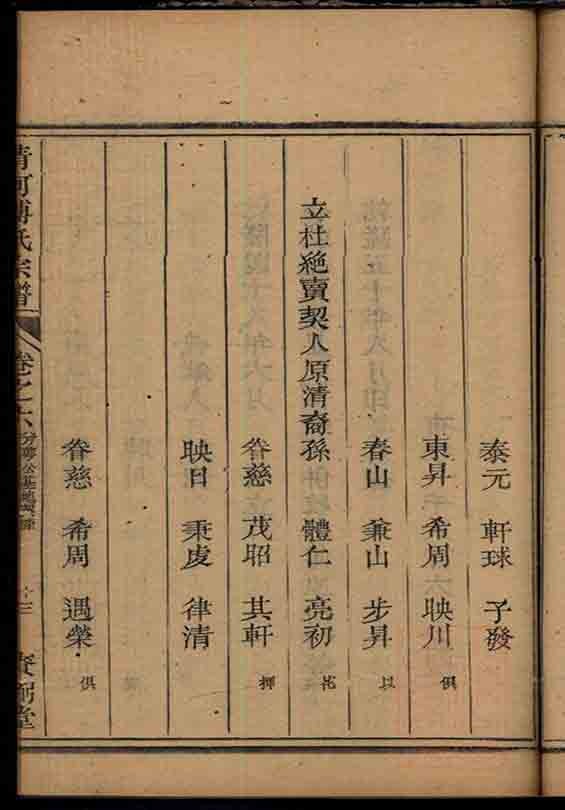 泰元 軒球 子發
東昇 希周 映川 俱
春山 兼山 步昇 以
立杜絶賣契人原清裔孫 體仁 亮初 花
眷慈 茂昭 其軒 押
映日 秉虔 律清
眷慈 希周 遇榮 俱
清河傅氏宗譜 卷之六 十三